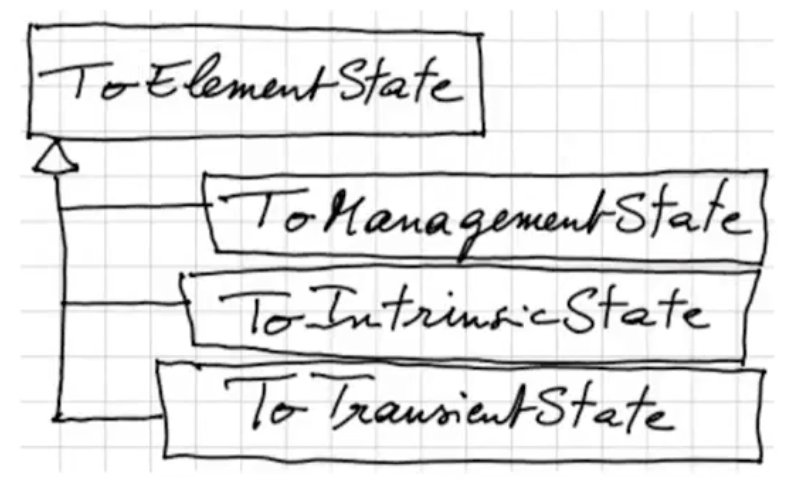 ToElementState
ToManagementState
ToIntrinsicState
ToTransientState